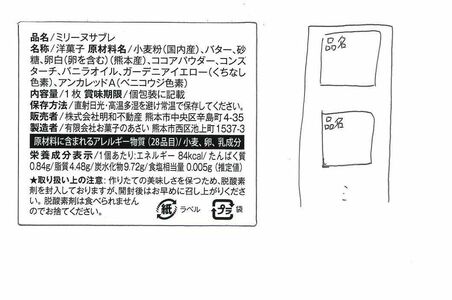 品名/ミリーヌサブレ
名称/洋菓子 原材料名/小麦粉(国内産)、バター、砂
糖、卵白(卵を含む)(熊本産)、ココアパウダー、コンス
ターチ、バニラオイル、ガーデニアイエロー(くちなし
色素)、アンカレッドA(ベニコウジ色素)
内容量/1枚 賞味期限/個包装に記載
保存方法/直射日光・高温多湿を避け常温で保存してください。
販売者/株式会社明和不動産 熊本市中央区辛島町4-35
製造者/有限会社お菓子のあさい 熊本市西区池上町1537-3
原材料に含まれるアレルギー物質(28品目)/小麦、卵、乳成分
栄養成分表示/1個あたり:エネルギー 84kcal/たんぱく質
0.84g/脂質4.48g/炭水化物9.72g/食塩相当量0.005g(推定値)
★取り扱い上の注意:作りたての美味しさを保つため、脱酸素
剤を封入しておりますが、開封後はお早めに召し上がりくださ
い。脱酸素剤は食べられません
のでお捨てください。
紙 ラベル プラ 袋
品名
品名